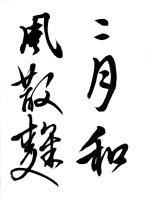 二月和
風散麹